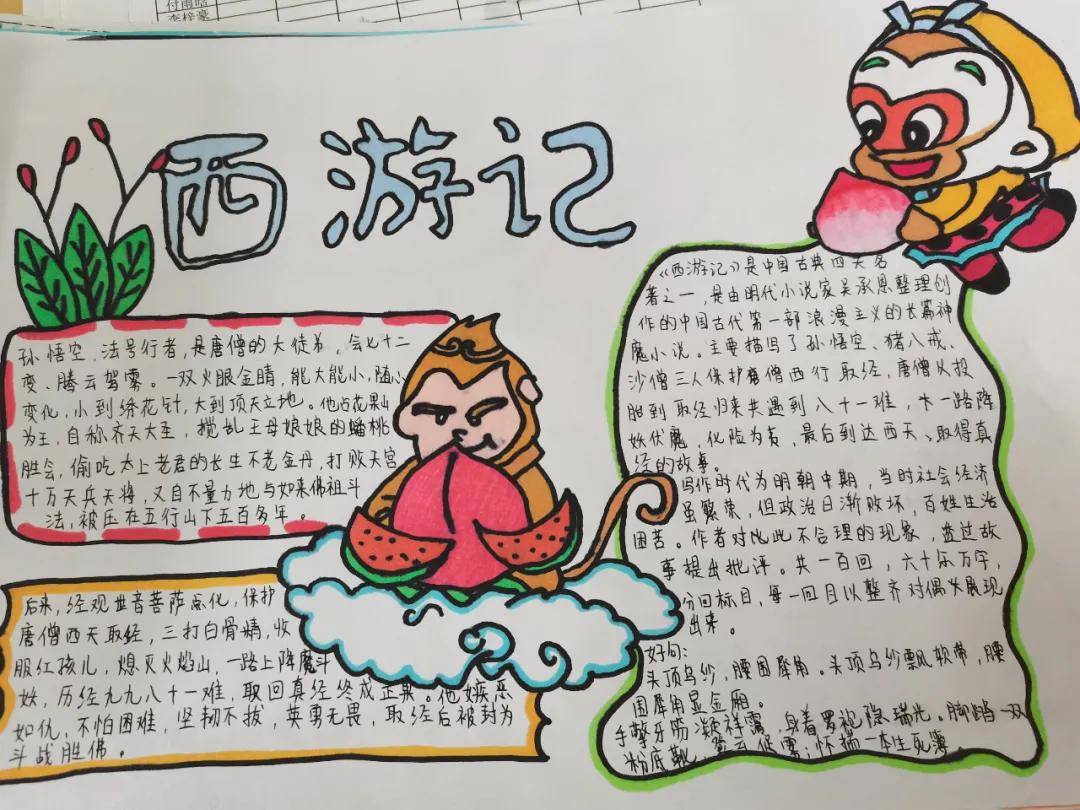 付雨晗
李梓豪
西游记
孙悟空,法号行者,是唐僧的大徒弟,会七十二
变、腾云驾雾。一双火眼金睛,能大能小,随心
变化,小到绣花针,大到顶天立地。他占花果山
为王,自称齐天大圣,搅乱王母娘娘的蟠桃
胜会,偷吃太上老君的长生不老金丹,打败天宫
十万天兵天将,又自不量力地与如来佛祖斗
法,被压在五行山下五百多年。
后来,经观世音菩萨点化,保护
唐僧西天取经,三打白骨精,收
服红孩儿,熄灭火焰山,一路上降魔斗
妖,历经九九八十一难,取回真经终成正果。他嫉恶
如仇,不怕困难,坚韧不拔,英勇无畏,取经后被封为
斗战胜佛。
《西游记》是中国古典四大名
著之一,是由明代小说家吴承恩整理创
作的中国古代第一部浪漫主义的长篇神
魔小说。主要描写了孙悟空、猪八戒、
沙僧三人保护唐僧西行取经,唐僧从投
胎到取经归来共遇到八十一难,一路降
妖伏魔,化险为夷,最后到达西天、取得真
经的故事。
写作时代为明朝中期,当时社会经济
虽繁荣,但政治日渐败坏,百姓生活
困苦。作者对此不合理的现象,透过故
事提出批评。共一百回,六十余万字,
分回标目,每一回目以整齐对偶展现
出来。
好句:
头顶乌纱,腰围犀角。头顶乌纱飘软带,腰
围犀角显金厢。
手擎牙笏凝祥霭,身着罗袍隐瑞光。脚踏一双
粉底靴,登云促雾;怀揣一本生死簿